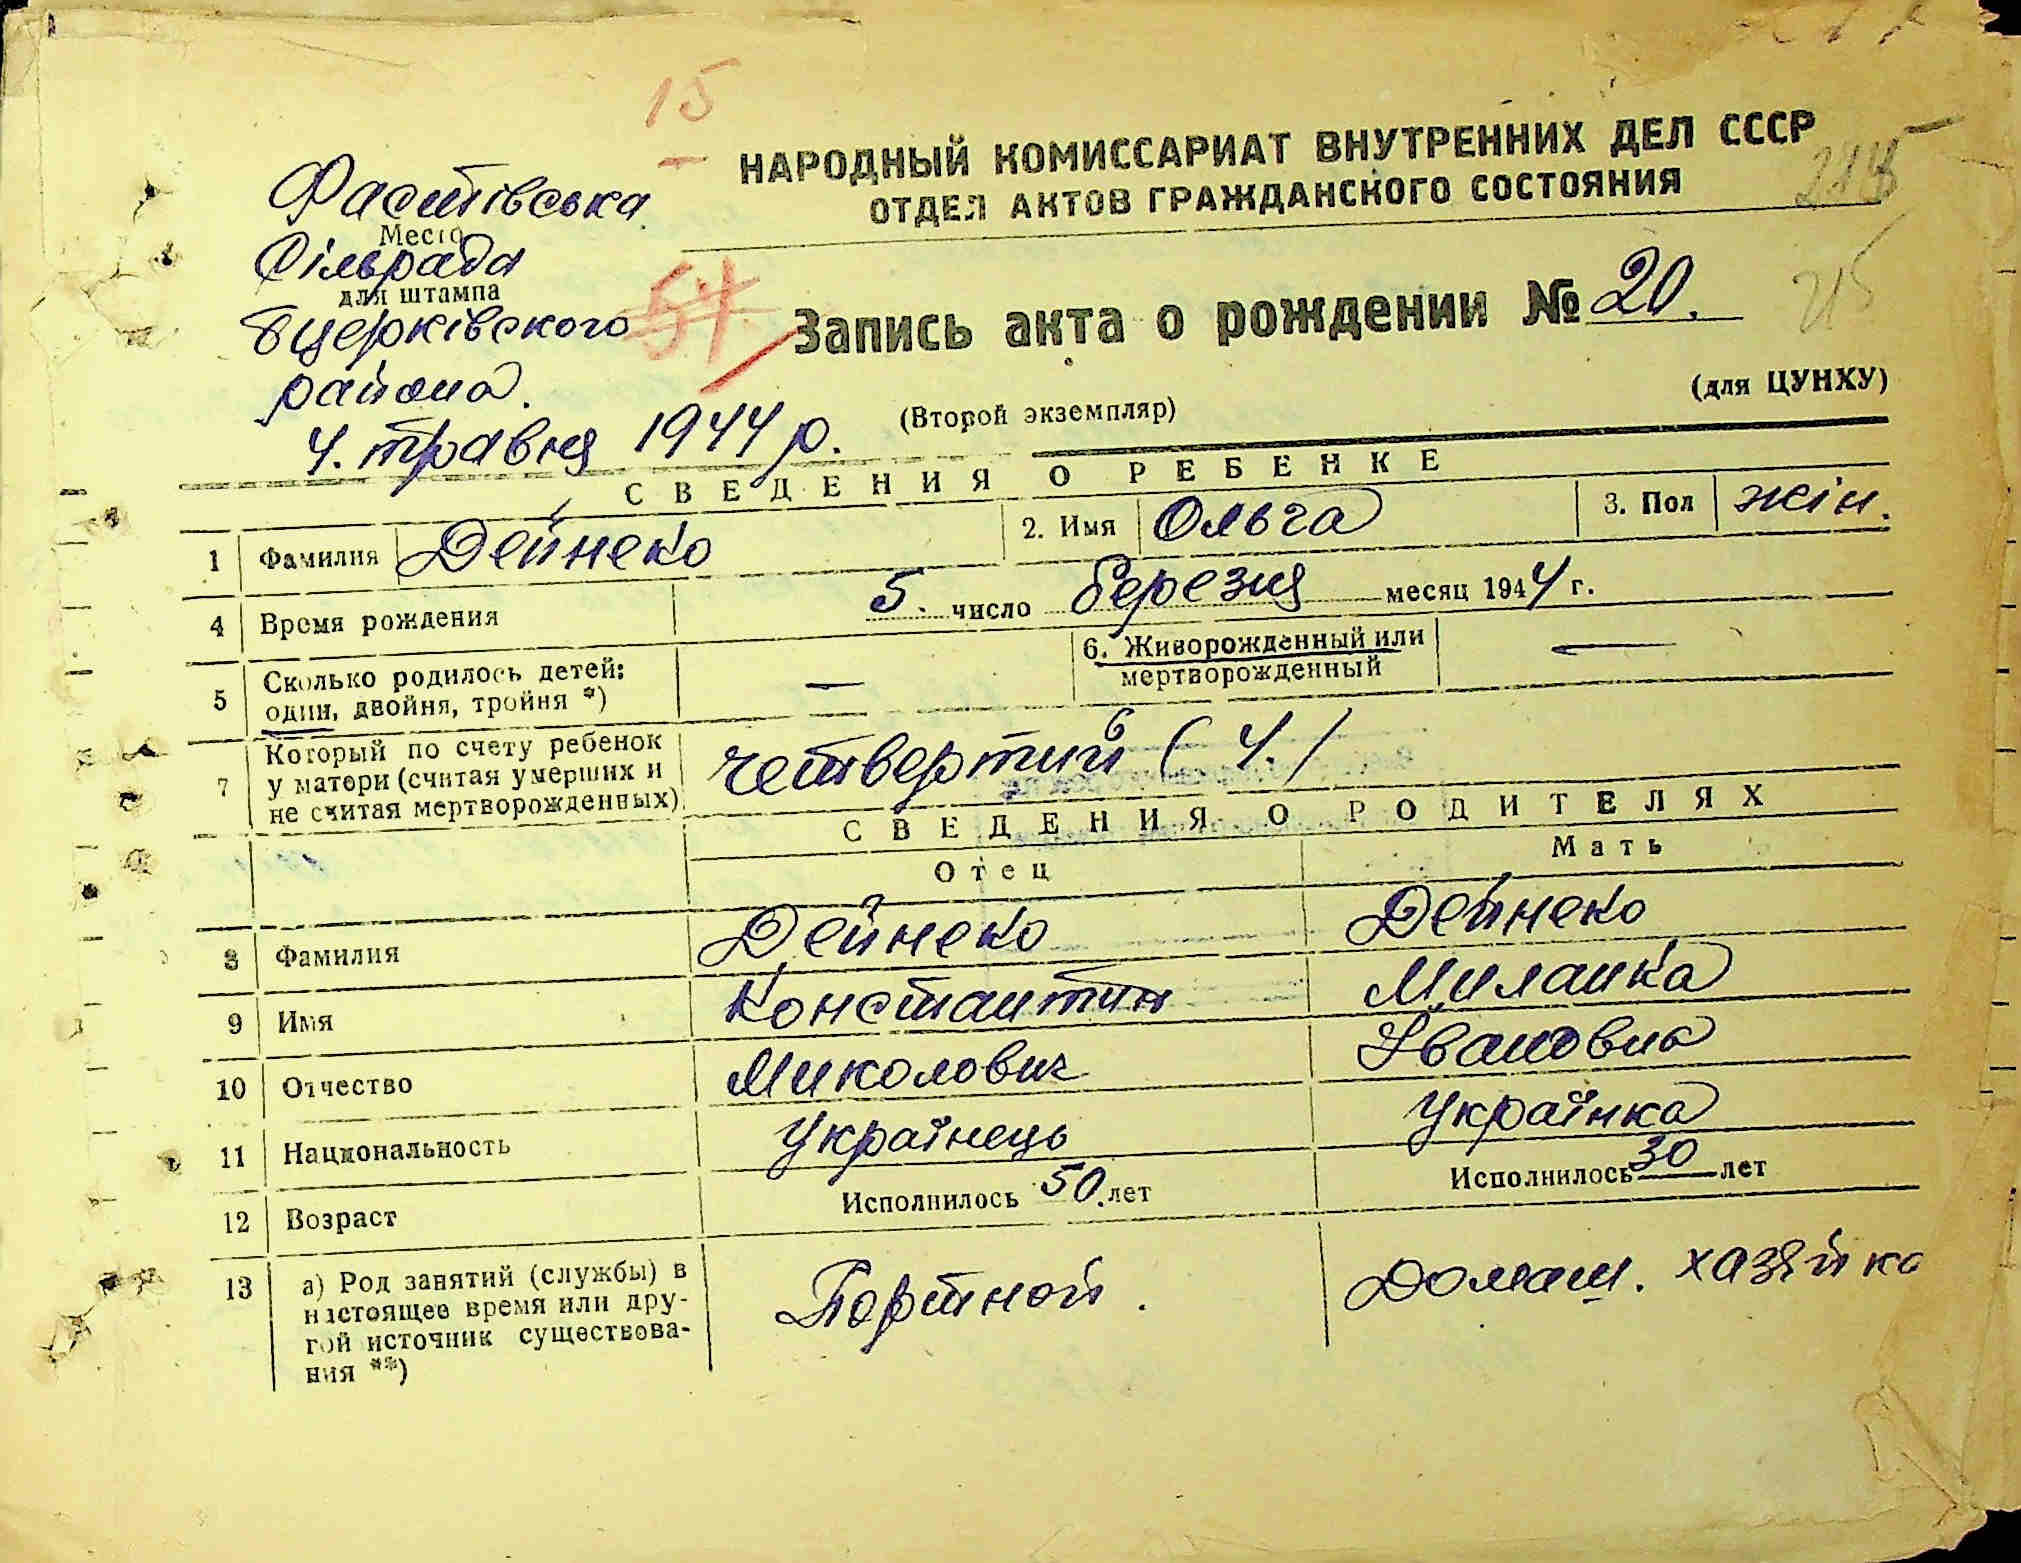 15
НАРОДНЫЙ КОМИССАРИАТ ВНУТРЕННИХ ДЕЛ СССР
ОТДЕЛ АКТОВ ГРАЖДАНСКОГО СОСТОЯНИЯ
Фастівська
Место
Сільрада
для штампа
Бцерківского
района.
54
215
Запись акта о рождении № 20.
(для ЦУНХУ)
4. травня 1944 р.
(Второй экземпляр)
СВЕДЕНИЯ О РЕБЕНКЕ
1 Фамилия Дейнеко 2. Имя Ольга 3. Пол жін.
4 Время рождения 5. число березня месяц 1944 г.
5 Сколько родилось детей: один, двойня, тройня *) — 6. Живорожденный или мертворожденный —
7 Который по счету ребенок у матери (считая умерших и не считая мертворожденных) четвертий (4.)
СВЕДЕНИЯ О РОДИТЕЛЯХ
Отец Мать
8 Фамилия Дейнеко Дейнеко
9 Имя Константин Миланка
10 Отчество Миколович Івановна
11 Национальность Українець Українка
12 Возраст Исполнилось 50. лет Исполнилось 30 лет
13 а) Род занятий (службы) в настоящее время или другой источник существования **) Портной. Домаш. хазяйка